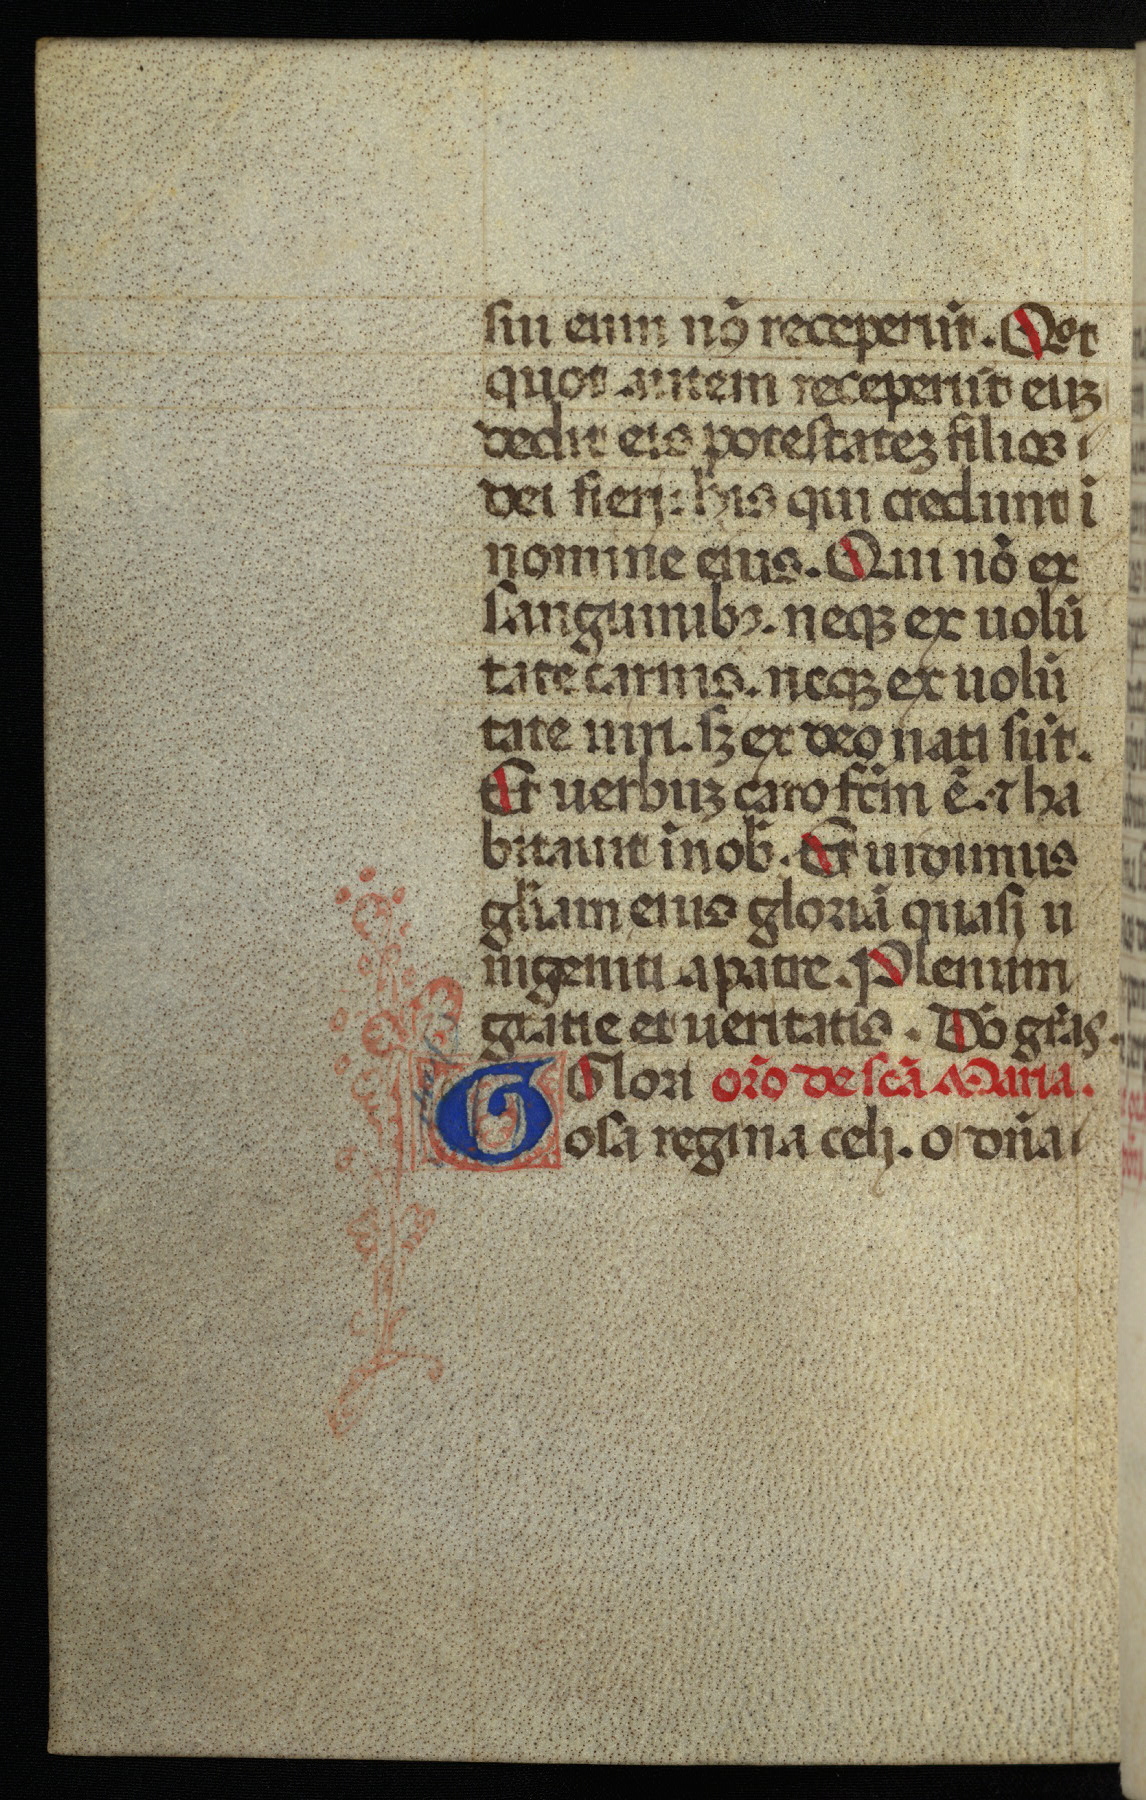 sui eum nō receperūt. Qot
quot autem receperūt euꝫ
dedit eis potestateꝫ filios
dei fierj: his qui credunt ī
nomine eius. Qui nō ex
sanguinibꝫ. neqꝫ ex uolū
tate carnis. neqꝫ ex uolū
tate uiri. sꝫ ex deo nati sūt.
Et uerbuꝫ caro fc̄m ē. ⁊ ha
bitauit ī nob̄. Et uidimus
gl̄iam eius gloriā quasj u
nigeniti a patre. Plenum
gratie et ueritatis. Dō gr̄as.
GGlori or̄o de sc̄a Maria.
osa regina celj. o dn̄a